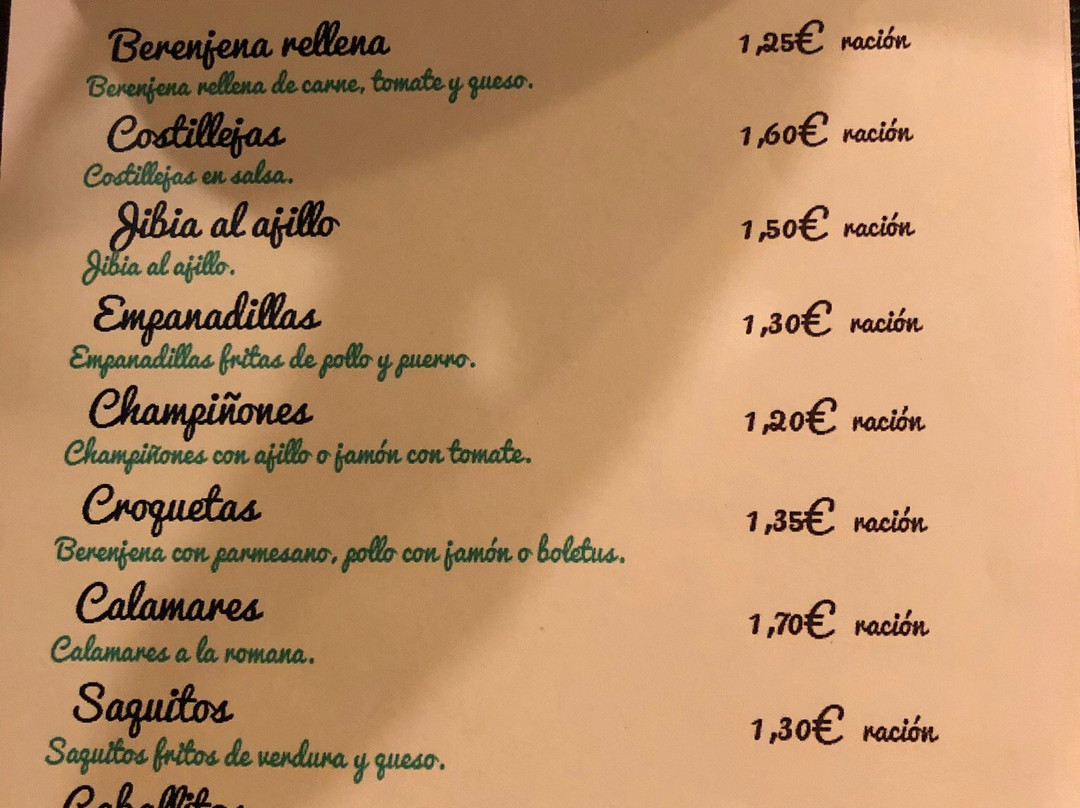 Berenjena rellena 1,25€ ración
Berenjena rellena de carne, tomate y queso.
Costillejas 1,60€ ración
Costillejas en salsa.
Jibia al ajillo 1,50€ ración
Jibia al ajillo.
Empanadillas 1,30€ ración
Empanadillas fritas de pollo y puerro.
Champiñones 1,20€ ración
Champiñones con ajillo o jamón con tomate.
Croquetas 1,35€ ración
Berenjena con parmesano, pollo con jamón o boletus.
Calamares 1,70€ ración
Calamares a la romana.
Saquitos 1,30€ ración
Saquitos fritos de verdura y queso.